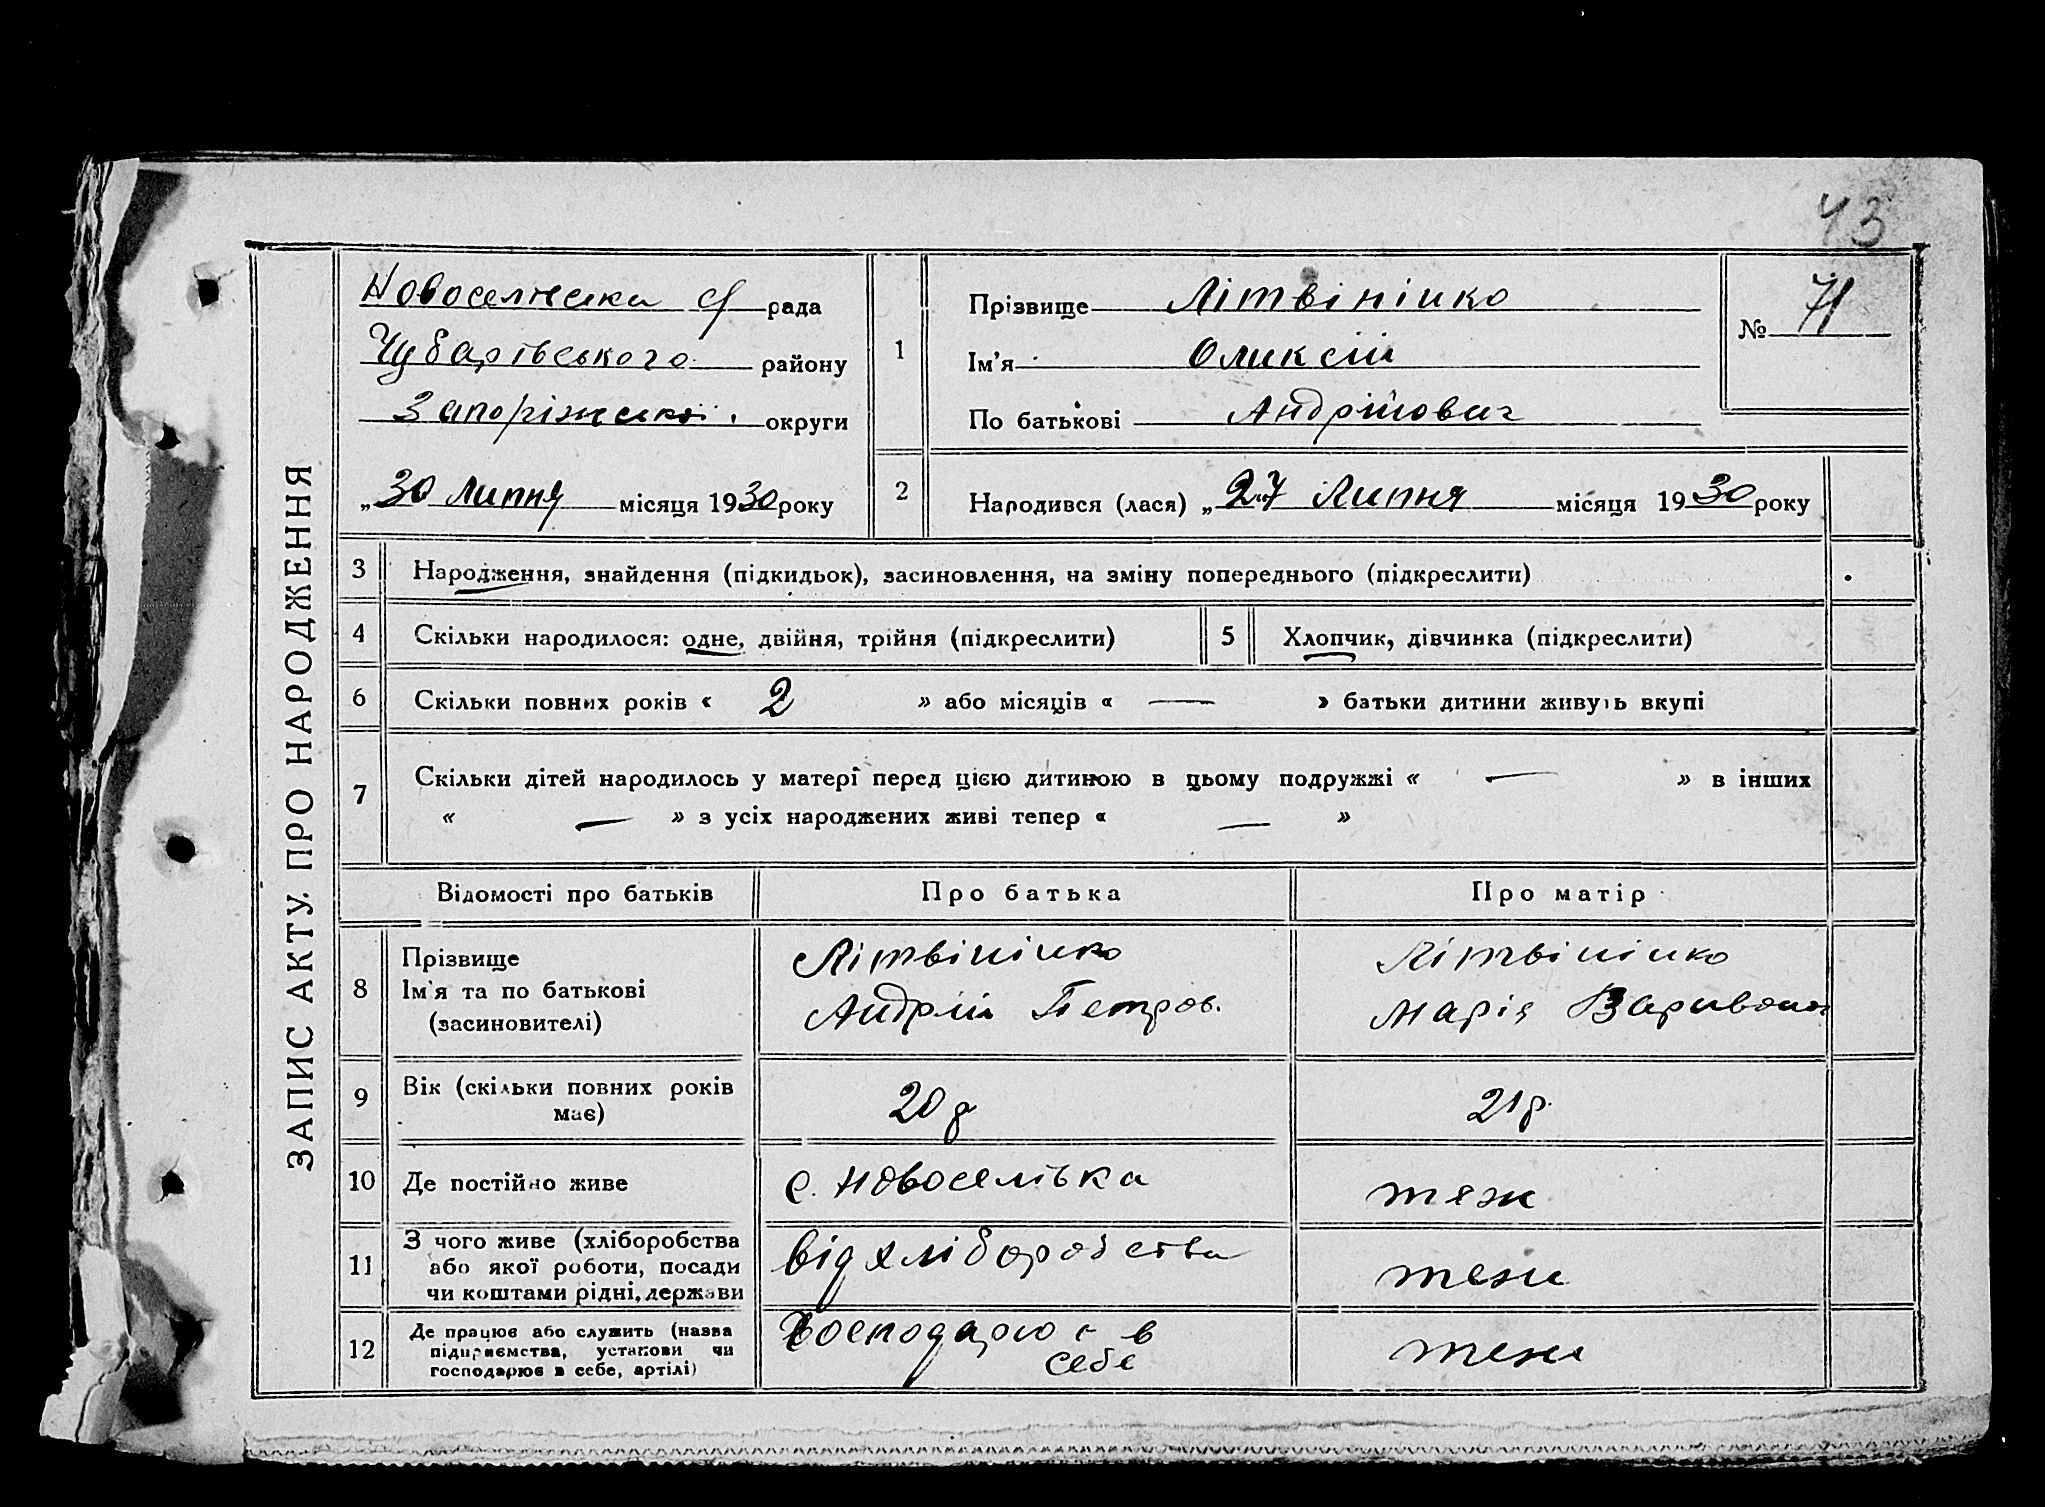 43
ЗАПИС АКТУ ПРО НАРОДЖЕННЯ
Новоселівська с/ рада
Чубарівського району
Запоріжської округи
„30 Липня місяця 1930 року
1
Прізвище Літвінінко
Ім'я Оликсій
По батькові Андрійович
№ 71
2
Народився (лася) „27 Липня місяця 1930 року
3 Народження, знайдення (підкидьок), засиновлення, на зміну попереднього (підкреслити)
4 Скільки народилося: одне, двійня, трійня (підкреслити) 5 Хлопчик, дівчинка (підкреслити)
6 Скільки повних років « 2 » або місяців « — » батьки дитини живуть вкупі
7 Скільки дітей народилось у матері перед цією дитиною в цьому подружжі « — » в інших
« — » з усіх народжених живі тепер « — »
Відомості про батьків Про батька Про матір
8 Прізвище
Ім'я та по батькові
(засиновителі)
Літвінінко
Андрій Петров.
Літвінінко
Марія
9 Вік (скільки повних років
має)
20 р
21 р.
10 Де постійно живе с. Новоселівка теж
11 З чого живе (хліборобства
або якої роботи, посади
чи коштами рідні, держави
від хліборобства теж
12 Де працює або служить (назва
підприємства, установи чи
господарює в себе, артілі)
Господарює в
себе
теж